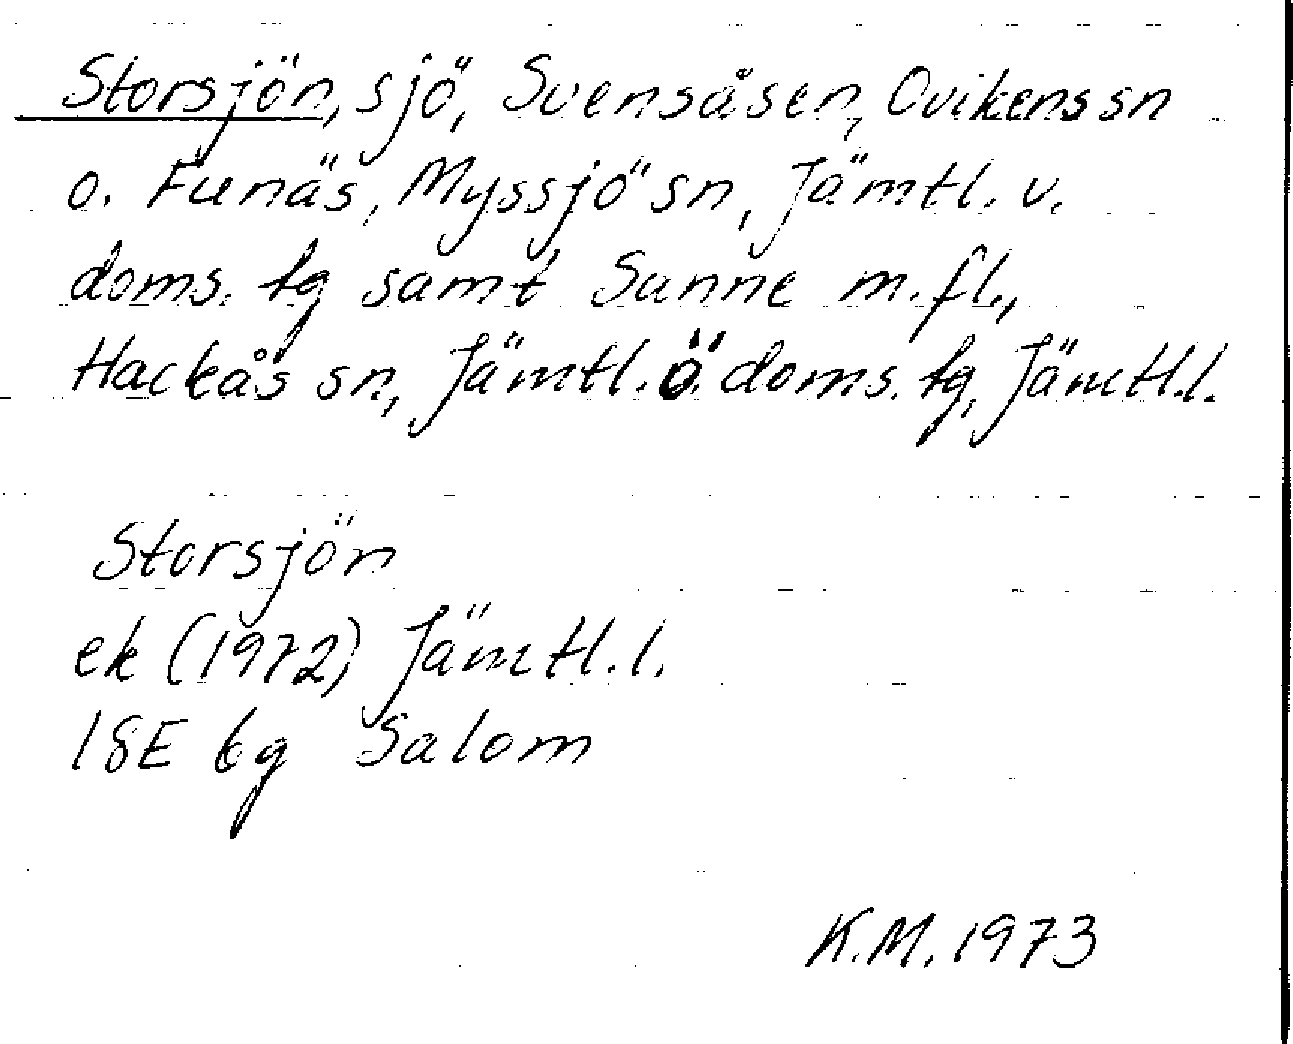 Storsjön, sjö, Svensåsen, Ovikens sn
o. Funäs, Myssjö sn, Jämtl. v.
doms. tg samt Sanne m.fl.,
Hackås sn, Jämtl. ö. doms. tg, Jämtl.l.
Storsjön
ek (1972) Jämtl.l.
18E bg Salom
K.M. 1973